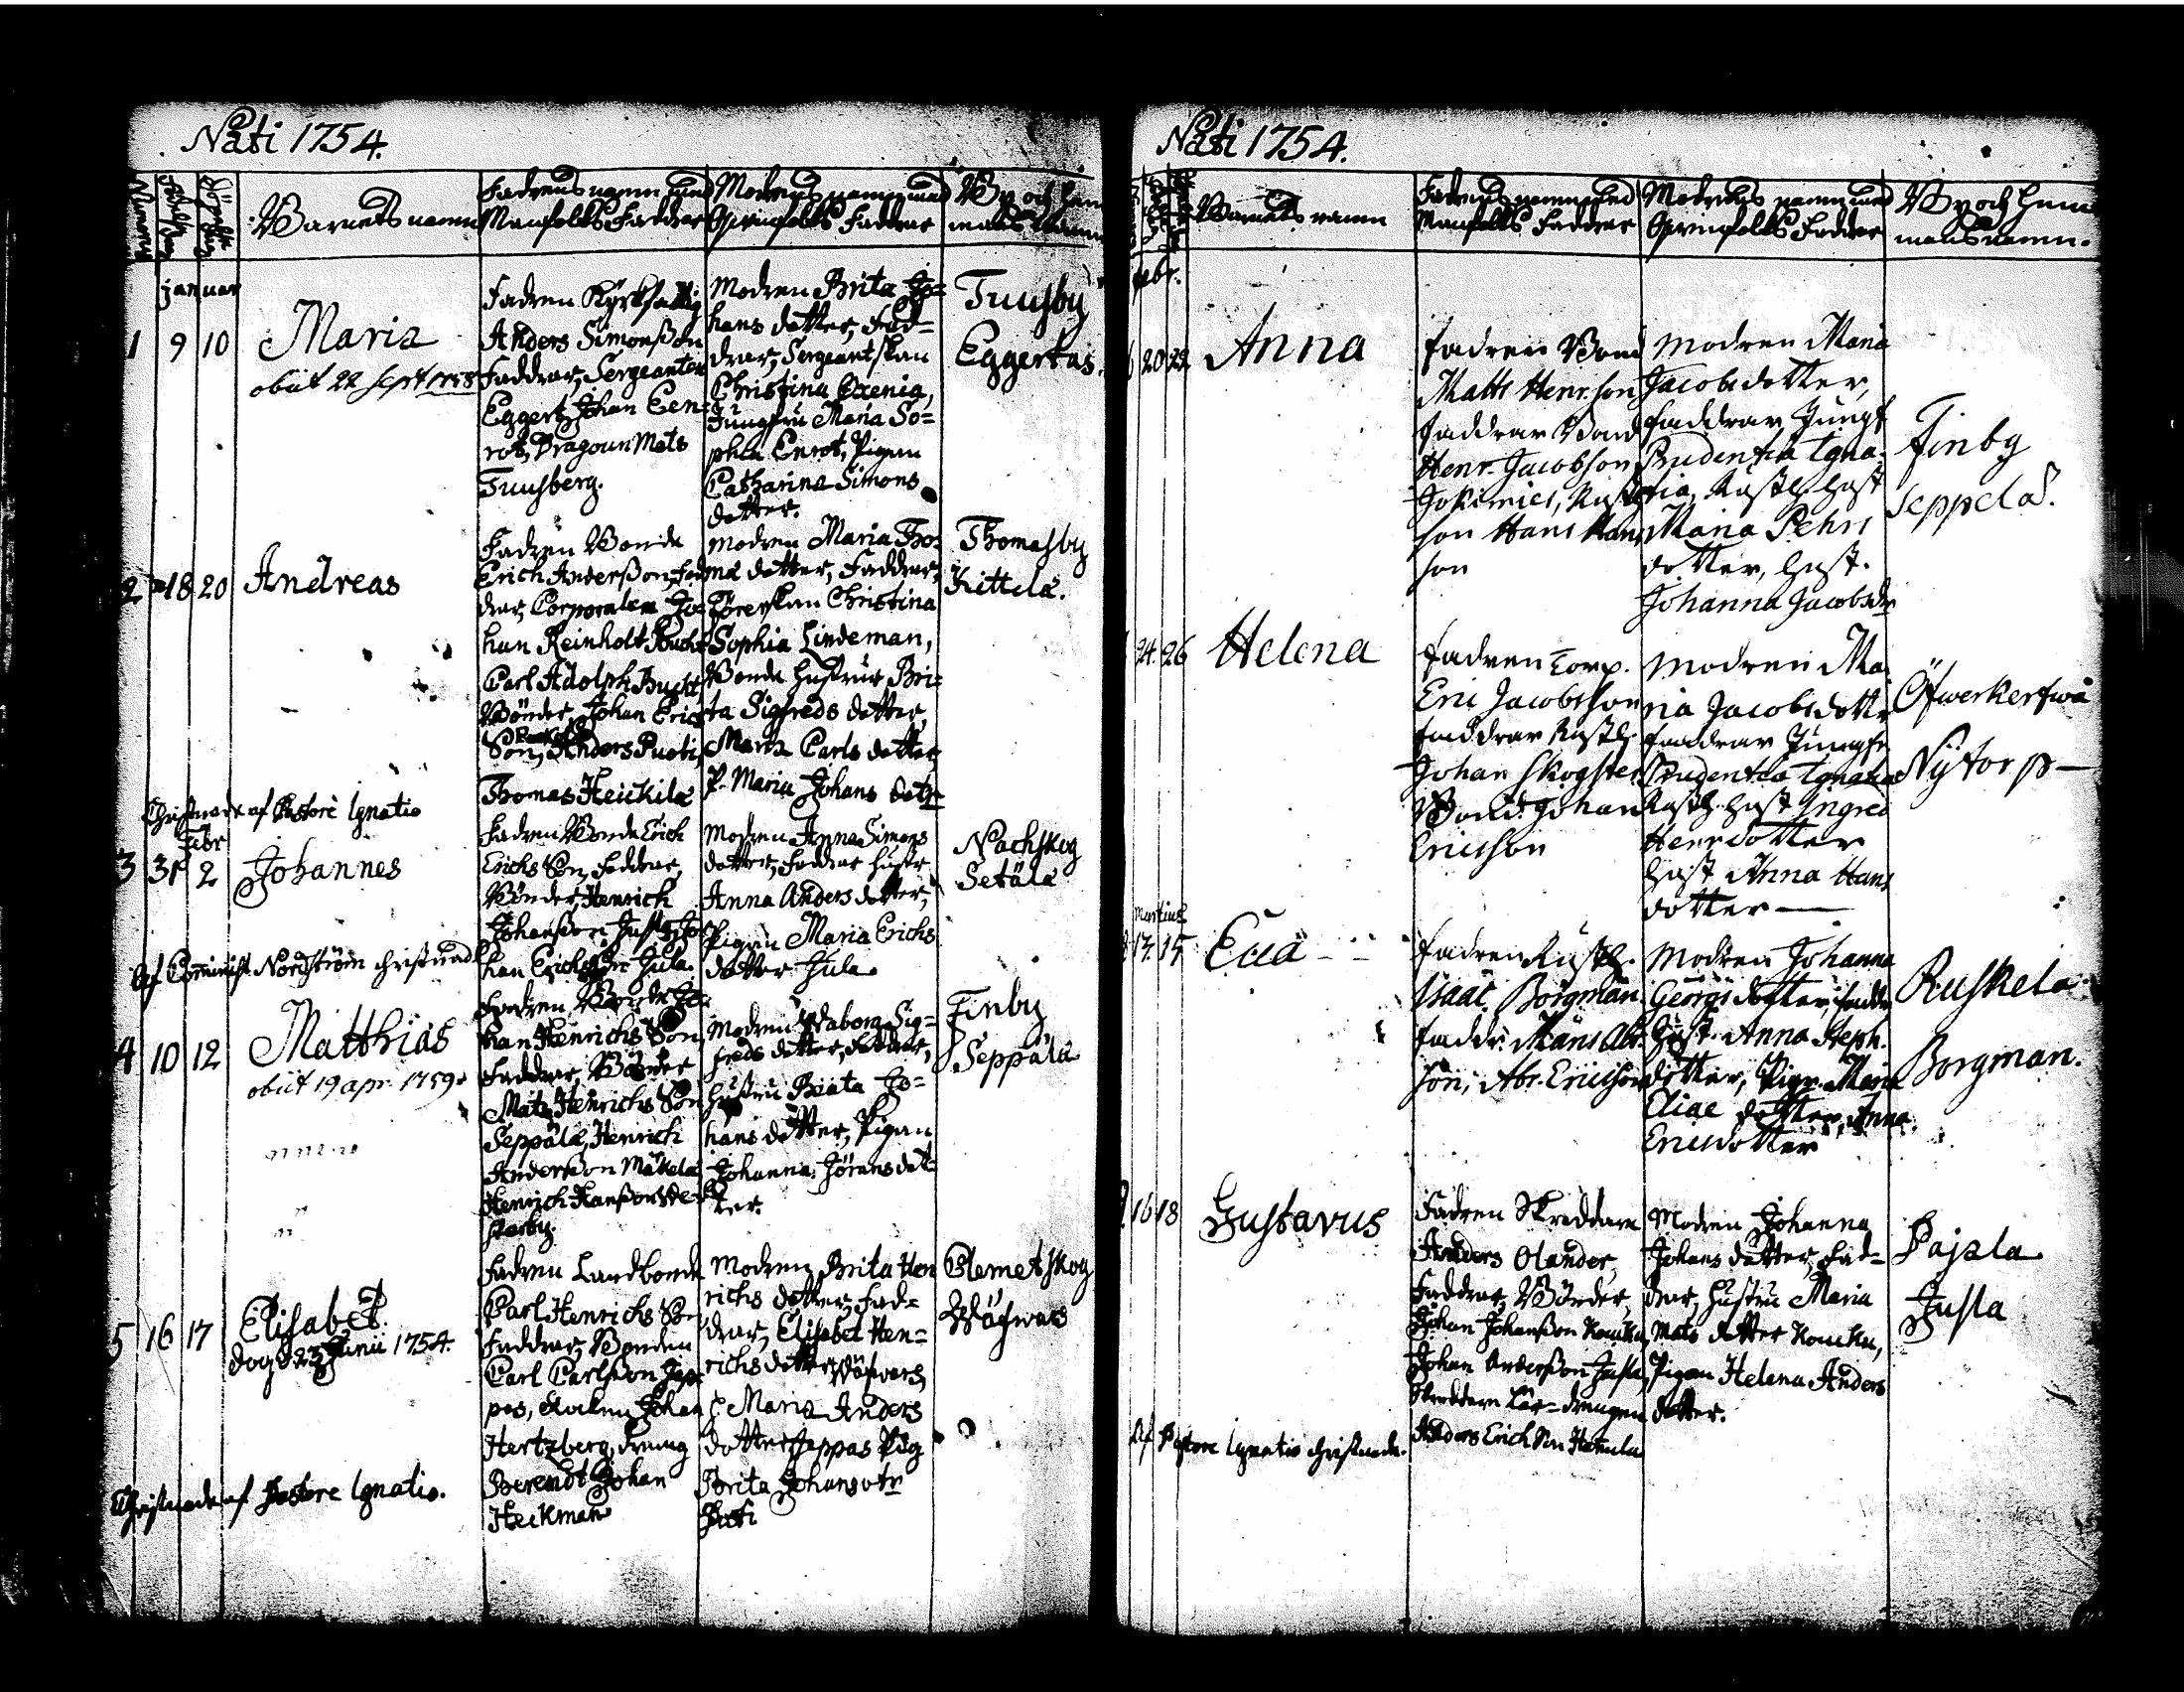 Nati 1754.
Numero
Födelse dag
Döpelse dag
Barnets namn
Fadrens namn med
Manfolks Faddrar
Modrens namn med
Qvinfolks Faddrar
By och Hem
mans namn
Januar
1 9 10
Maria
obiit 22 Sept 1758
Fadren Kyrkfattig
Anders Simonsson
Faddrar, Sergeanten
Eggert, Johan Een-
rot, Dragoun Mats
Tuusberg.
Modren Brita Jo-
hans dotter, Fad-
drar, Sergeantskan
Christina
Jungfru Maria So-
phia Enrot, Pigan
Catharina Simons
dotter.
Tuusby
Eggertas.
2 18 20
Andreas
Fadren Bonde
Erich Andersson, Fad
drar, Corporalen Jo-
han Reinholt
Carl Adolph
Bönder, Johan Erics
Son, Anders
Thomas Heickilä
Modren Maria Tho-
mæ dotter, Faddrar,
Christina
Sophia Lindeman,
Bonde hustrur Bri-
ta Sigfreds dotter,
Maria Carls dotter
P. Maria Johans dotr
Thomasby
Kittelä.
Christnade af Pastore Ignatio
Febr
3 31 2
Johannes
Fadren Bonde Erich
Erichs Son, Faddrar,
Bönder, Henrich
Johansson Jo
han Erichsson Jula.
Modren Anna Simons
dotter, Faddrar hustr
Anna Anders dotter,
Pigan Maria Erichs
dotter Jula.
Nachskog
Setälä
Af Comminist. Nordström christnad
4 10 12
Matthias
obiit 19 apr. 1759
Fadren Bonde Jo
han Henrichs Son
Faddrar, Bönder
Mats Henrichs Son
Seppälä, Henrich
Andersson Mäkelä
Henrich Hansson
Modren Wabora Sig-
freds dotter, Faddrar,
hustru Beata Jo-
hans dotter, Pigan
Johanna Jörans dot-
ter.
Finby
Seppälä
5 16 17
Elisabet.
dog d 25 Junii 1754.
Fadren Landbonde
Carl Henrichs Son
Faddrar, Bonden
Carl Carlsson Jep
pas, Johan
Hertzberg, dreng
Berendt Johan
Heckman
Modren Brita Hen
richs dotter, Fad-
drar, Elisabet Hen-
richs dotter Wäfwars,
Maria Anders
dotter Jeppas Pig
Brita Johans dtr
Clemetskog
Wäfwars
Christnade af Pastore Ignatio.
Nati 1754.
Barnets namn
Fadrens namn med
Manfolks Faddrar
Modrens namn med
Qvinfolks Faddrar
By och Hem
mans namn.
febr.
20 22
Anna
fadren Bond
Matts Henrson
faddrar Bond
Henr. Jacobson
son Hans Hans
son
Modren Maria
Jacobsdotter,
faddrar Jungf
Prudentia Igna
tia, Rusth. hust
Maria Pehrs
dotter, hust.
Johanna Jacobsdr
Finby
Seppelä.
24. 26
Helena
fadren Corp.
Eric Jacobsson
faddrar Rusth.
Johan Skogster
Bond. Johan
Ericsson
Modren Ma
ria Jacobsdottr
faddrar Jungfr
Prudentia Ignatia
Rusth. hust Ingred
Henrsdotter
hust Anna Hans
dotter —
Öfwerkerfwä
Nÿtorp —
Martius
14. 15
Eva
fadren Rusth.
Isaac Borgman.
faddr. Måns Abr.
son, Abr. Ericsson
Modren Johanna
Georgs dotter, faddr
hust. Anna Steph.
dotter, Pigr. Maria
Eliae dotter, Anna
Ericsdotter
Ruskela
Borgman.
16 18
Gustavus
Fadren Skreddare
Anders Olander,
Faddrar, Bönder,
Johan Johansson Koucku,
Johan Andersson Jusla,
Skreddare Lär-drengen
Anders Erich Son
Modren Johanna
Johans dotter, Fad-
drar, Hustru Maria
Mats dotter Koucku,
Pigan Helena Anders
dotter.
Pajala
Jusla
Af Pastore Ignatio christnade.